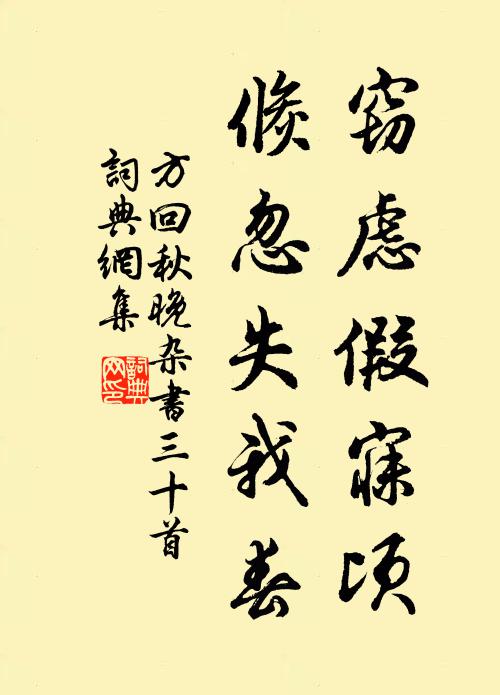 窃虑假寐顷
倏忽失我春
方回秋晚杂書三十首
詞典網集
詞典网印